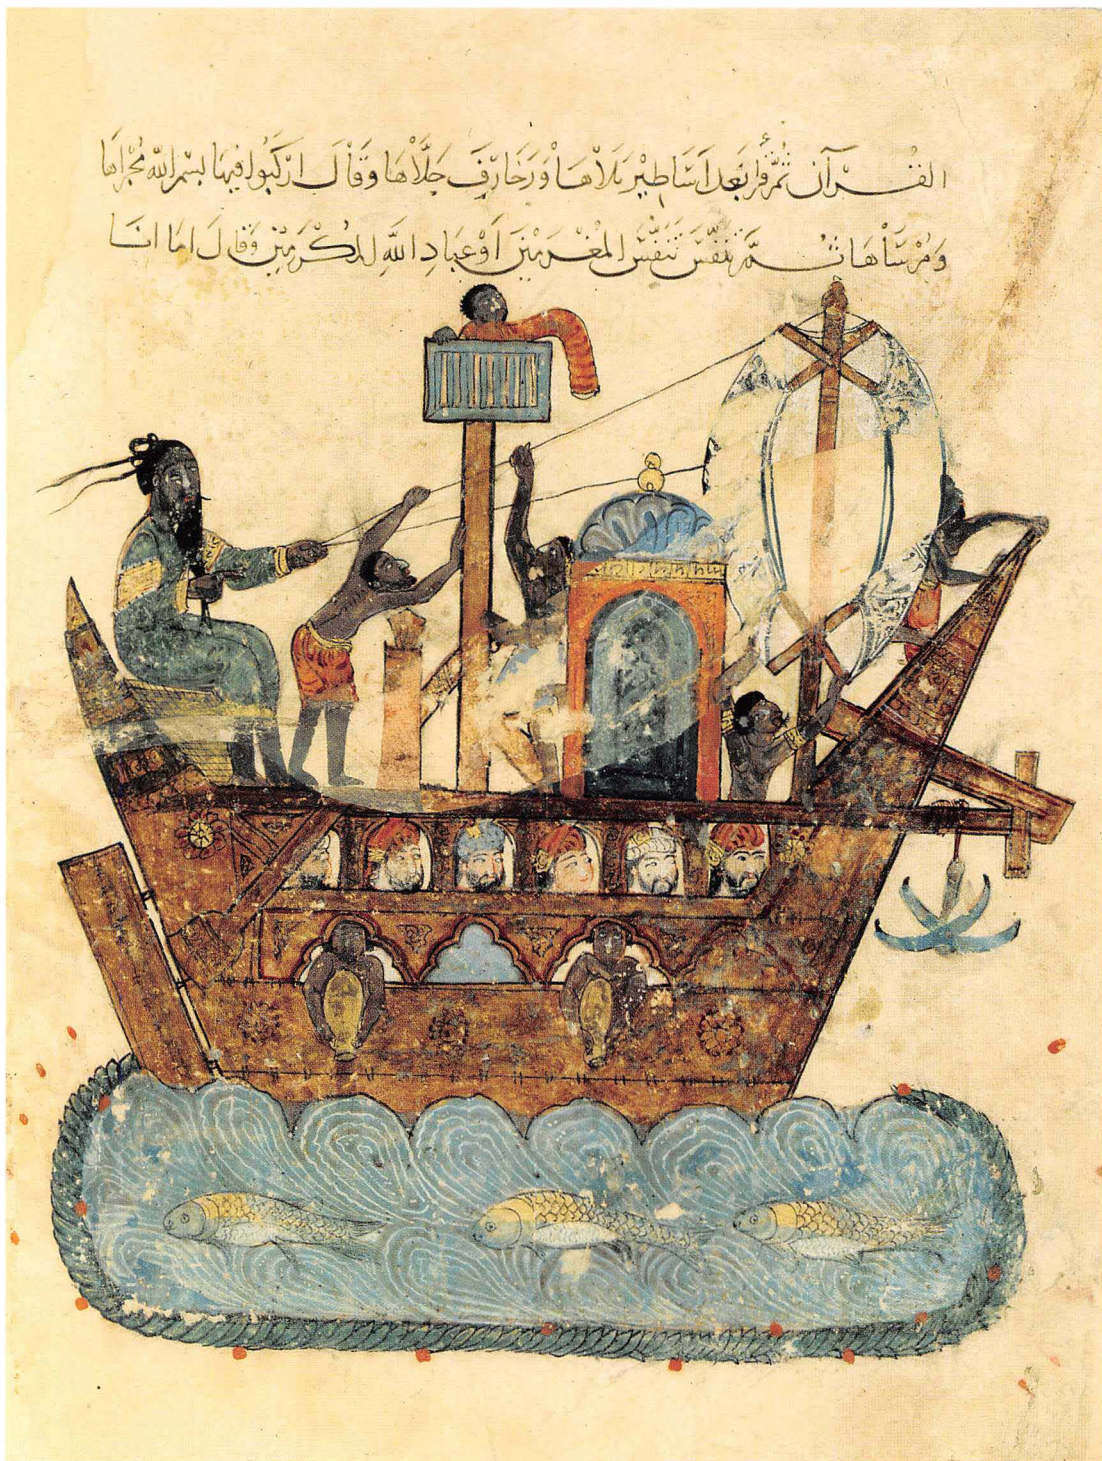 القُرْآن ثُمَّ قَرَأَ بَعْدَ اسَاطِيْرَ تَلَاْهَا وَزَخَارِفَ جَلَّاْهَا وَقَاْلَ ارْكَبُوا فِيهَا بِسْمِ اللّٰهِ مُجْرَاهَا
وَمُرْسَاْهَا ثُمَّ تَنَفَّسَ تَنَفُّسَ المُغْرَمِيْنَ اَوْ عِبَادِ اللّٰهِ المُكْرَمِيْنَ وَقَالَ امَا انَا